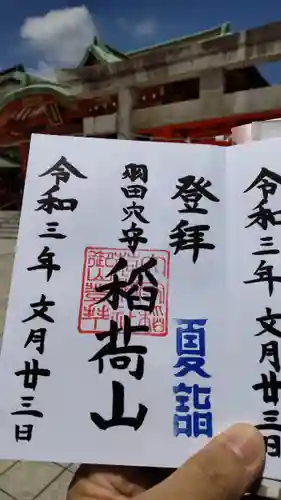 登拝
夏詣
羽田穴守
稲荷山
令和三年文月廿三日
令和三年文月廿三日